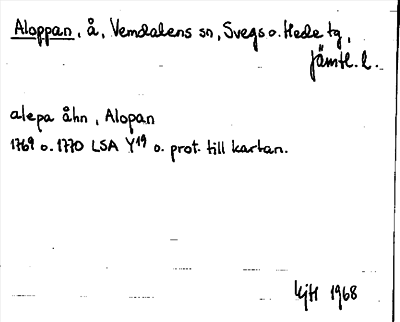 Aloppan, å, Vemdalens sn, Svegs o. Hede tg,
Jämtl. l.
alepa åhn, Alopan
1769 o. 1770 LSA Y19 o. prot. till kartan.
1968